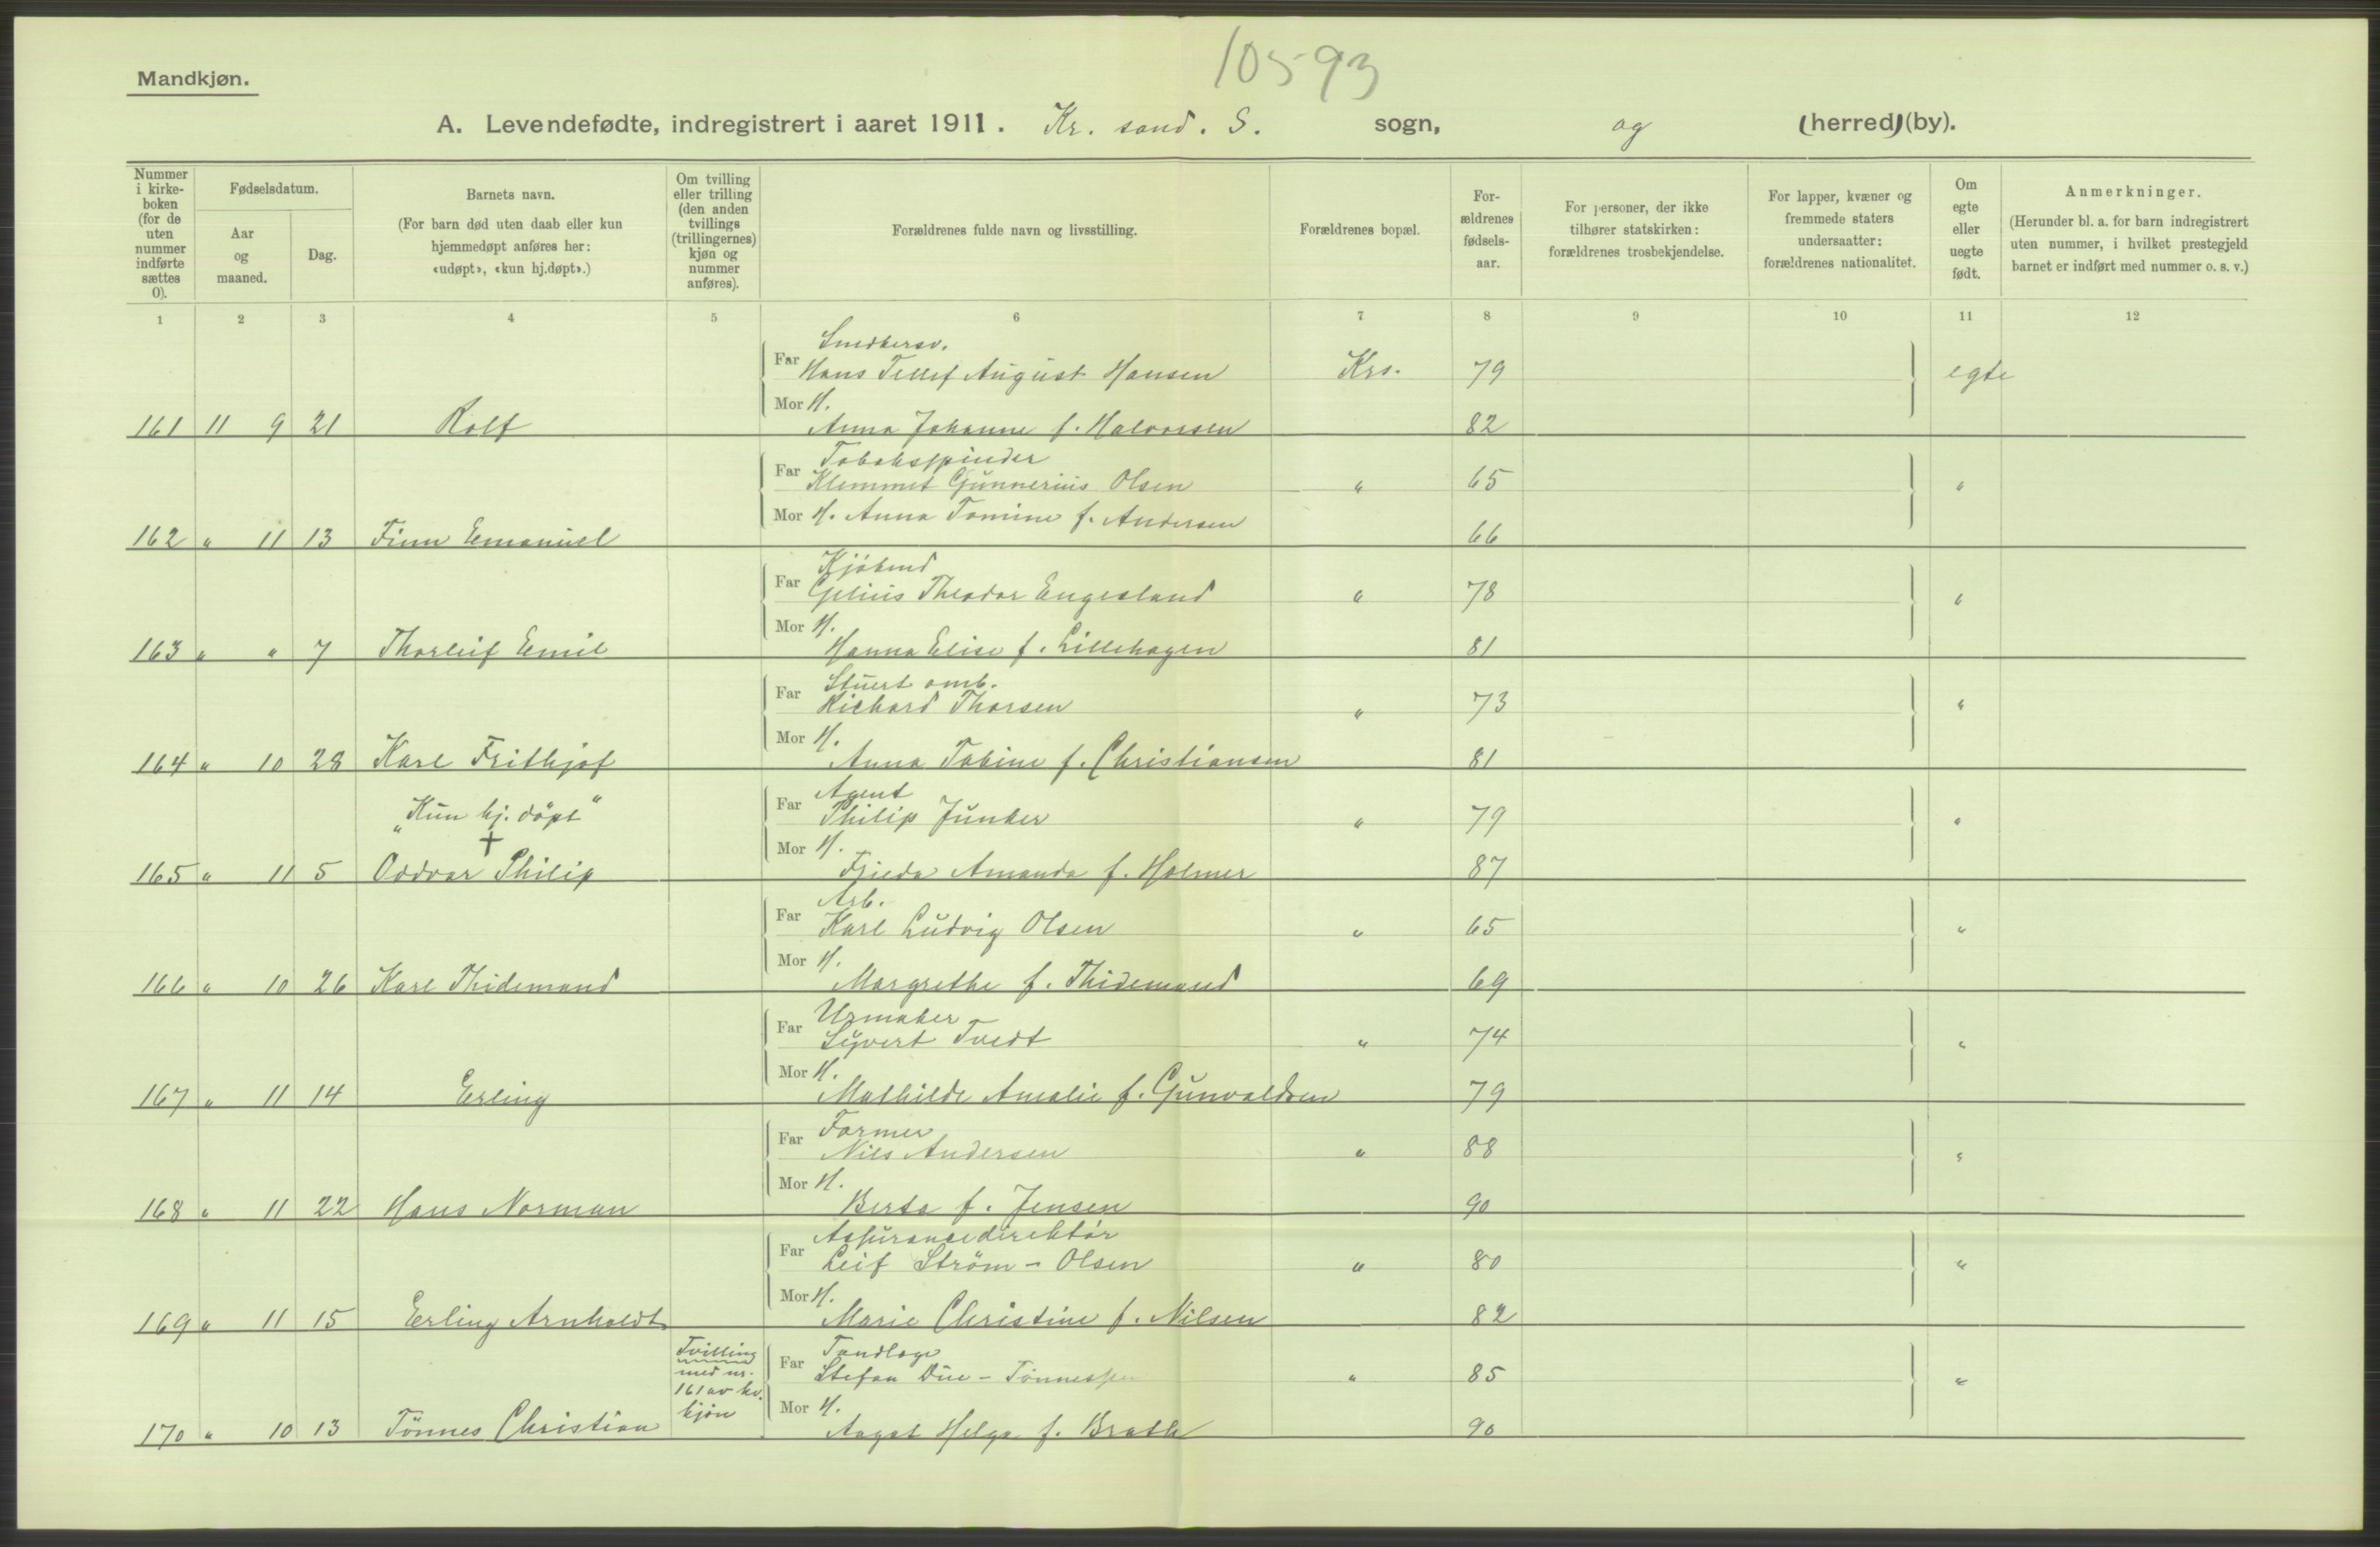 10593
Mandkjøn.
A. Levendefødte, indregistrert i aaret 1911. Kr. sand. S. sogn, og (herred) (by).
Nummer i kirke- boken (for de uten nummer indførte sættes 0).
Fødselsdatum.
Aar og maaned.
Dag.
Barnets navn.
(For barn død uten daab eller kun hjemmedøpt anføres her: «udøpt», «kun hj.døpt».)
Om tvilling eller trilling (den anden tvillings (trillingernes) kjøn og nummer anføres).
Forældrenes fulde navn og livsstilling.
Forældrenes bopæl.
For- ældrenes fødsels- aar.
For personer, der ikke tilhører statskirken: forældrenes trosbekjendelse.
For lapper, kvæner og fremmede staters undersaatter: forældrenes nationalitet.
Om egte eller uegte født.
Anmerkninger.
(Herunder bl. a. for barn indregistrert uten nummer, i hvilket prestegjeld barnet er indført med nummer o. s. v.)
1 2 3 4 5 6 7 8 9 10 11 12
Smedkersv.
Far Hans Tellef August Hansen Krs. 79 egte
Mor H.
161 11 9 21 Rolf Anna Johanne f. Halvorsen 82
Tobakspinder
Far Klemmet Gunnerius Olsen " 65 "
Mor H. Anna Tomine f. Andersen
162 " 11 13 Finn Emanuel 66
Kjøbmd
Far Gelius Theodor Engesland " 78 "
Mor H.
163 " " 7 Thorleif Emil Hanna Elise f. Lillehagen 81
Stuert omb.
Far Richard Thorsen " 73 "
Mor H.
164 " 10 28 Karl Frithjof Anna Tobine f. Christiansen 81
Agent
„Kun hj. døpt" Far Philip Junker " 79 "
+ Mor H.
165 " 11 5 Oddvar Philip Frieda Amanda f. Holmer 87
Arb.
Far Karl Ludvig Olsen " 65 "
Mor H.
166 " 10 26 Karl Thidemand Margrethe f. Thidemand 69
Urmaker
Far Syvert Tvedt " 74 "
Mor H.
167 " 11 14 Erling Mathilde Amalie f. Gunvaldsen 79
Former
Far Nils Andersen " 88 "
Mor H.
168 " 11 22 Hans Norman Berta f. Jensen 90
Assurancedirektør
Far Leif Strøm - Olsen " 80 "
Mor H.
169 " 11 15 Erling Arnholdt Marie Christine f. Nilsen 82
Tvilling med nr. 161 av kv. kjøn
Tandlæge
Far Stefan Due - Tønnessen " 85 "
Mor H.
170 " 10 13 Tönnes Christian Aagot Helga f. Brath 90